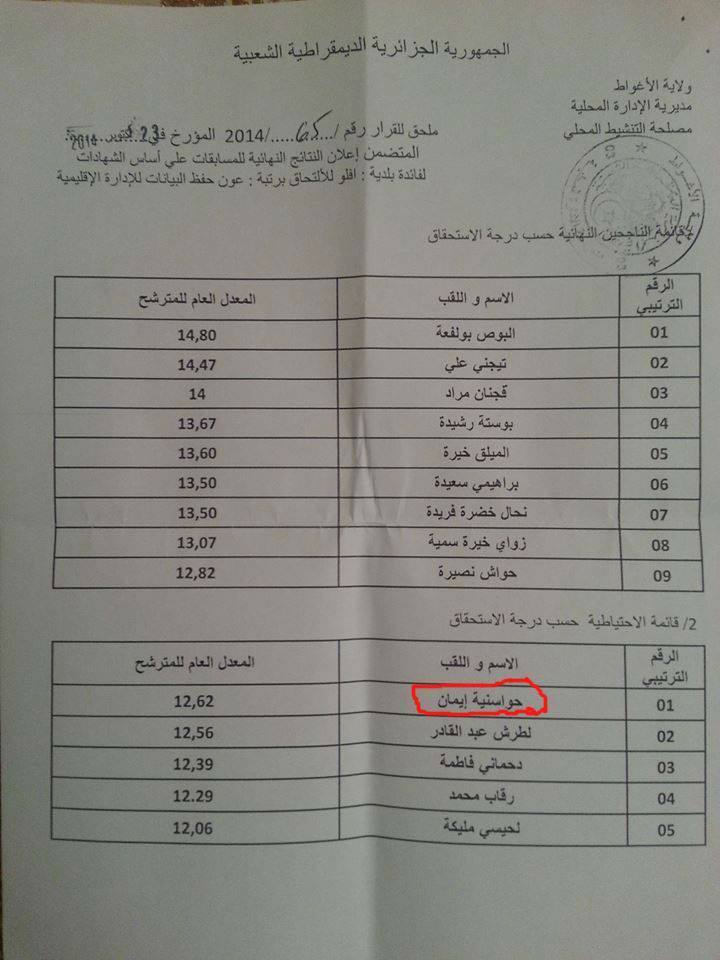 الجمهورية الجزائرية الديمقراطية الشعبية
ولاية الأغواط
مديرية الإدارة المحلية
مصلحة التنشيط المحلي
ملحق للقرار رقم /...65.../2014 المؤرخ في 23 أكتوبر 2014
المتضمن إعلان النتائج النهائية للمسابقات علي أساس الشهادات
لفائدة بلدية : افلو للألتحاق برتبة : عون حفظ البيانات للإدارة الإقليمية
قائمة الناجحين النهائية حسب درجة الاستحقاق
الرقم الترتيبي الاسم و اللقب المعدل العام للمترشح
01 البوص بولفعة 14,80
02 تيجني علي 14,47
03 قجنان مراد 14
04 بوستة رشيدة 13,67
05 الميلق خيرة 13,60
06 براهيمي سعيدة 13,50
07 نحال خضرة فريدة 13,50
08 زواي خيرة سمية 13,07
09 حواش نصيرة 12,82
2/ قائمة الاحتياطية حسب درجة الاستحقاق
الرقم الترتيبي الاسم و اللقب المعدل العام للمترشح
01 حواسنية إيمان 12,62
02 لطرش عبد القادر 12,56
03 دحماني فاطمة 12,39
04 رقاب محمد 12.29
05 لحيسي مليكة 12,06